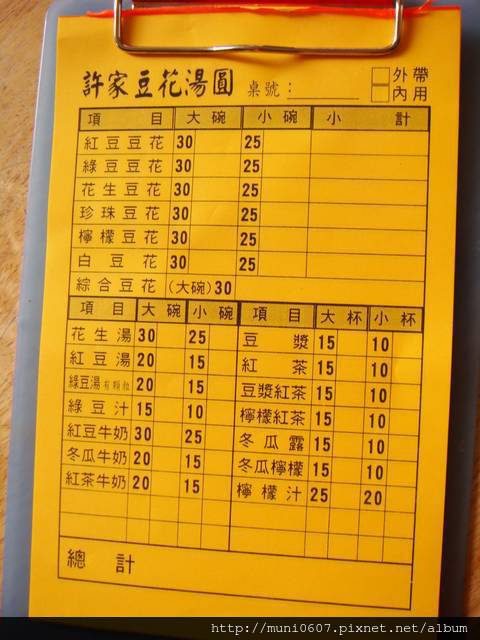 許家豆花湯圓 桌號：
外帶
內用
項目 大碗 小碗 小計
紅豆豆花 30 25
綠豆豆花 30 25
花生豆花 30 25
珍珠豆花 30 25
檸檬豆花 30 25
白豆花 30 25
綜合豆花 (大碗)30
項目 大碗 小碗 項目 大杯 小杯
花生湯 30 25 豆漿 15 10
紅豆湯 20 15 紅茶 15 10
綠豆湯有顆粒 20 15 豆漿紅茶 15 10
綠豆汁 15 10 檸檬紅茶 15 10
紅豆牛奶 30 25 冬瓜露 15 10
冬瓜牛奶 20 15 冬瓜檸檬 15 10
紅茶牛奶 20 15 檸檬汁 25 20
總計
http://muni0607.pixnet.net/album